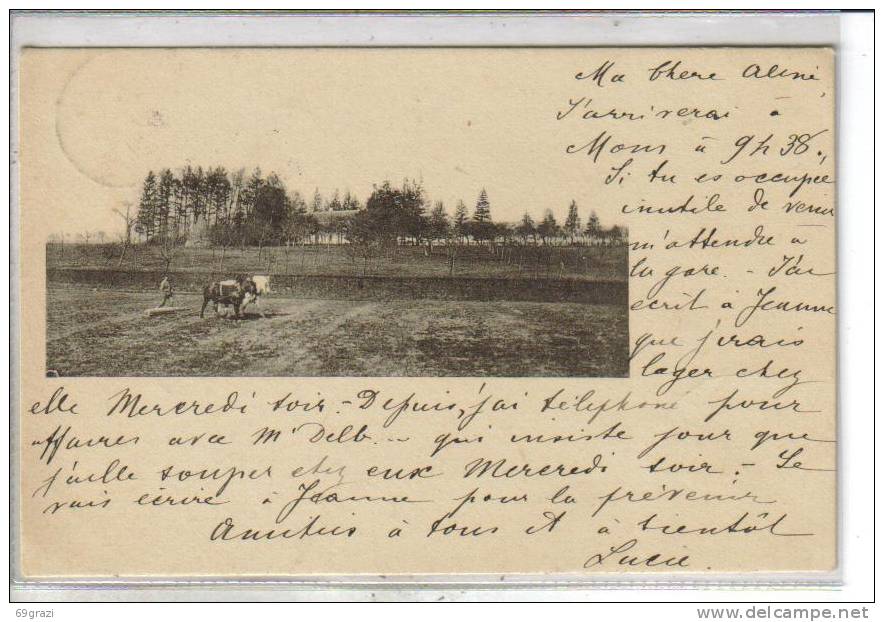 Ma Chere Aliné
J'arriverai à
Mons à 9h 38.,
Si tu es occupée
inutile de venir
m'attendre à
la gare. - J'ai
écrit à Jeanne
que j'irais
loger chez
elle Mercredi soir. - Depuis, j'ai téléphoné pour
affaires avec Mr Delb... qui insiste pour que
j'aille souper chez eux Mercredi soir. - Je
vais écrire à Jeanne pour la prévenir
Amitiés à tous et à bientôt
Lucie.
69grazi
www.delcampe.net